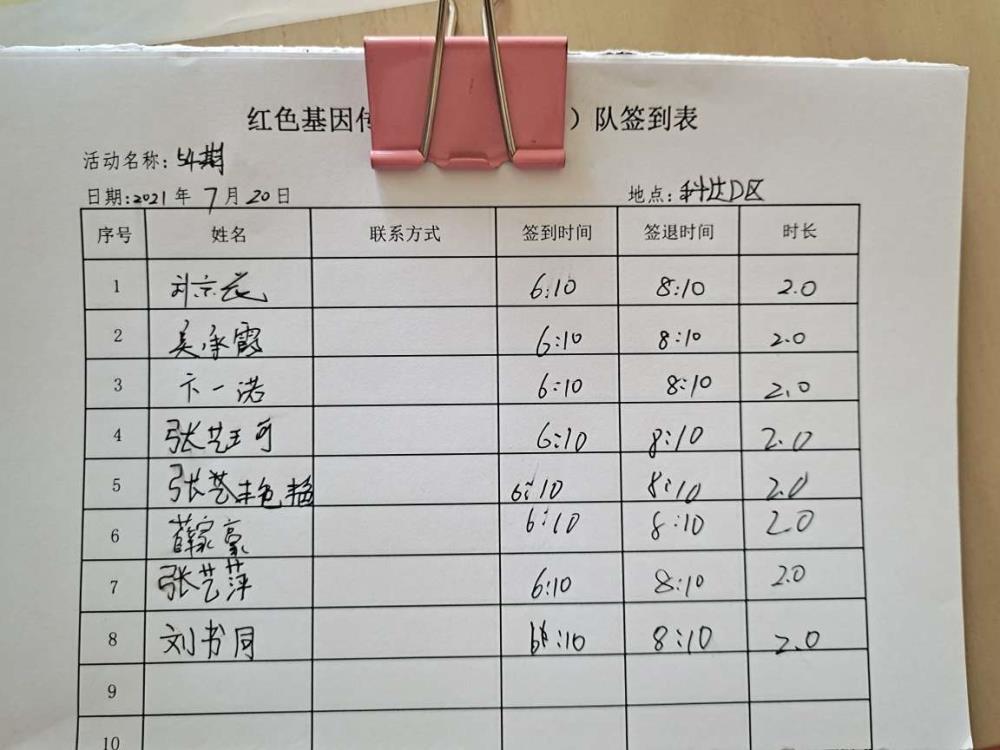 红色基因传 ）队签到表
活动名称: 54期
日期:2021年7月20日 地点:科达D区
序号 姓名 联系方式 签到时间 签退时间 时长
1 刘京花 6:10 8:10 2.0
2 吴承霞 6:10 8:10 2.0
3 卞一诺 6:10 8:10 2.0
4 张艺珂 6:10 8:10 2.0
5 张艺艳 艳 6:10 8:10 2.0
6 薛家豪 6:10 8:10 2.0
7 张艺萍 6:10 8:10 2.0
8 刘书同 6:10 8:10 2.0
9
10